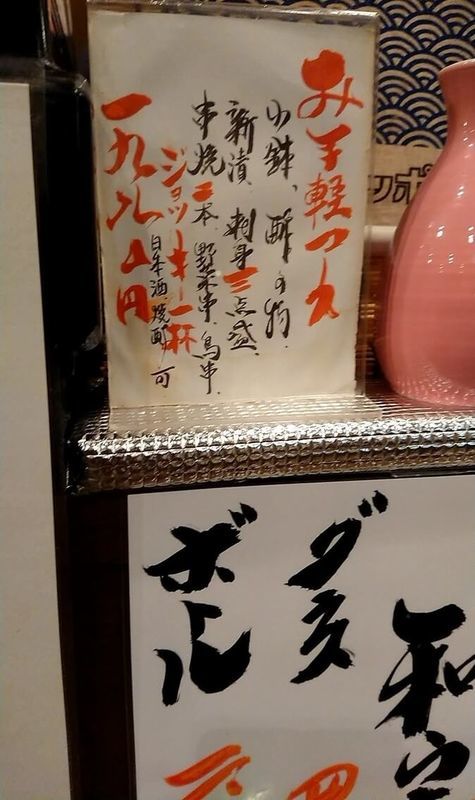 お手軽コース
小鉢、酢の物、
新漬、刺身三点盛、
串焼二本、野菜串、鳥串、
ジョッキ一杯
日本酒、焼酎可
一九八〇円
ンポ
グラス
ボトル
和
四